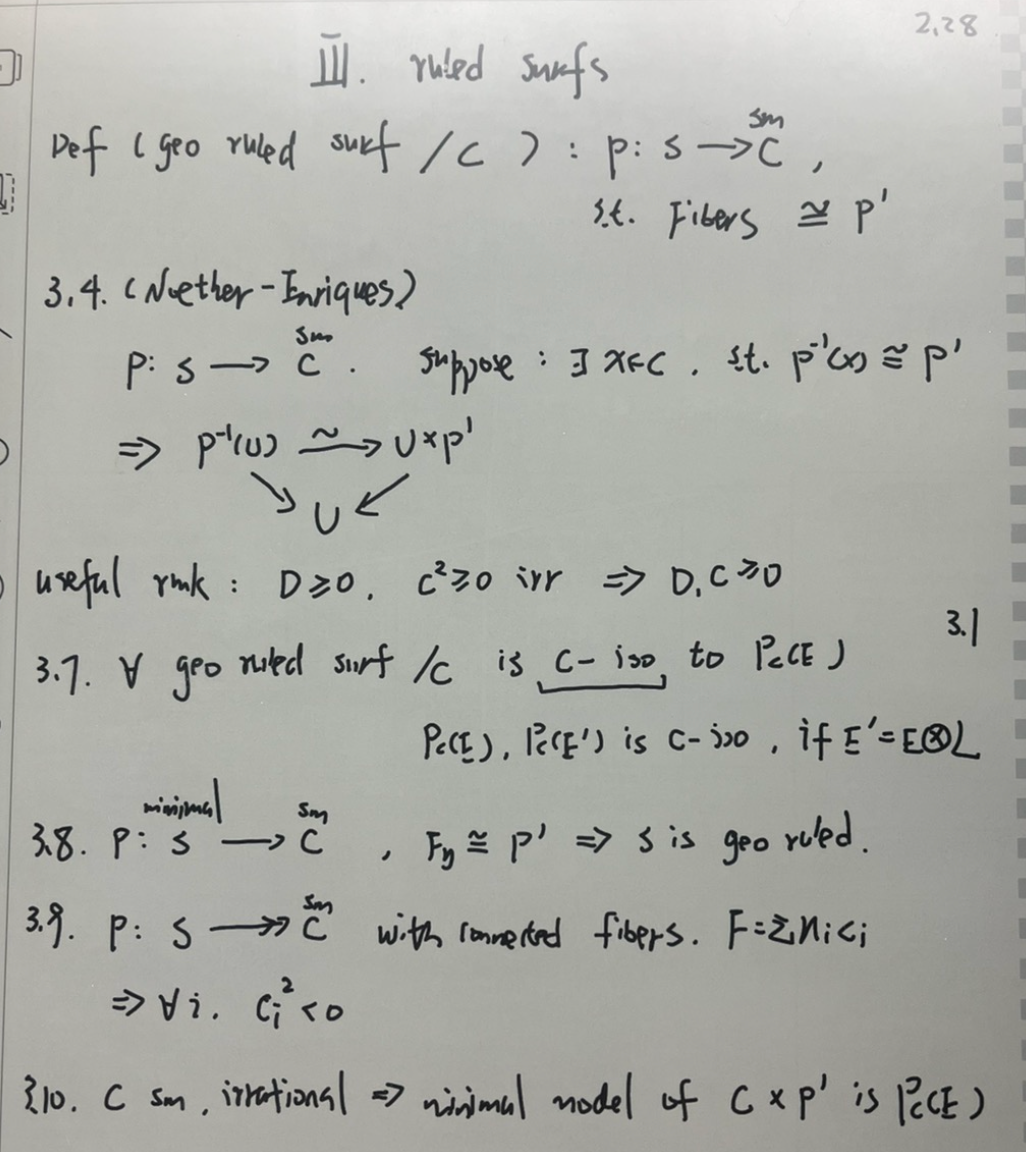 2.28
III. ruled surfs
Def (geo ruled surf /C) : p: S → C^{sm},
s.t. Fibers ≅ P'
3.4. (Noether-Enriques)
p: S → C^{sm}. suppose : ∃ x∈C. s.t. p^{-1}(x) ≅ P'
⇒ p^{-1}(U) ⥲ U×P'
↘ U ↙
useful rmk : D≥0. C²≥0 irr ⇒ D.C≥0
3.1
3.7. ∀ geo ruled surf /C is C-iso to P_C(E)
P_C(E), P_C(E') is C-iso, if E'=E⊗L
3.8. p: S^{minimal} → C^{sm}, F_y ≅ P' ⇒ S is geo ruled.
3.9. p: S ↠ C^{sm} with connected fibers. F=Σn_iC_i
⇒ ∀i. C_i²<0
3.10. C sm, irrational ⇒ minimal model of C×P' is P_C(E)